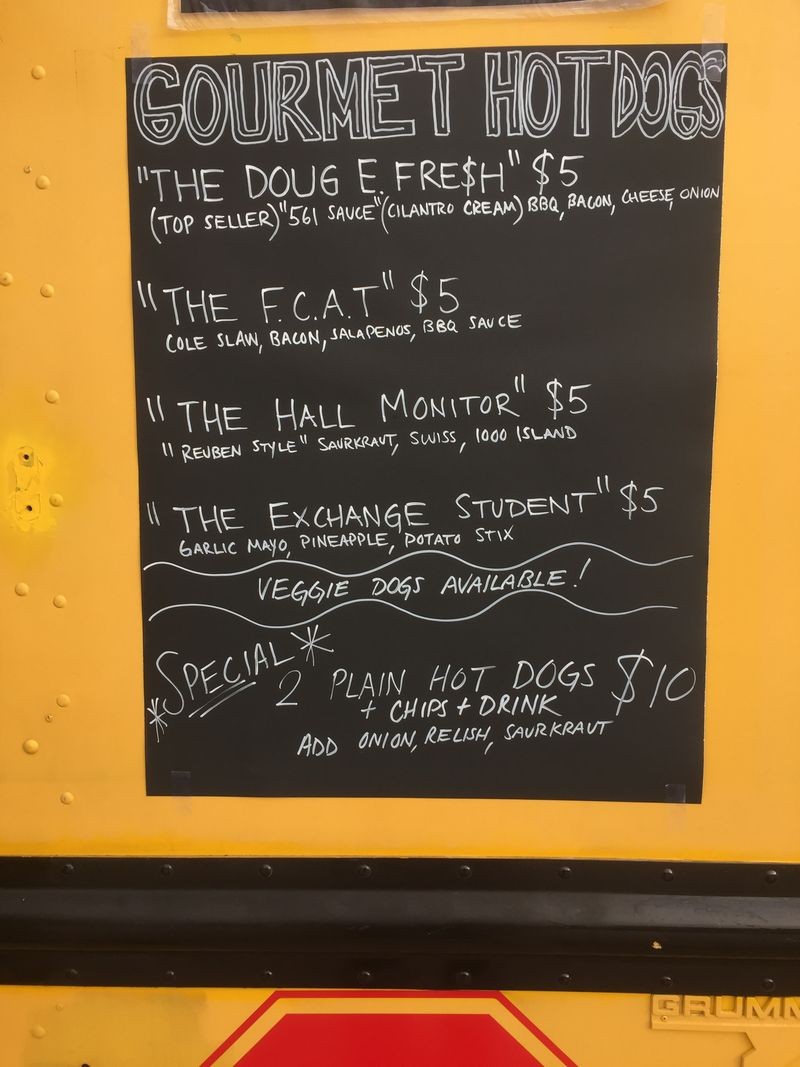 GOURMET HOT DOGS
"THE DOUG E. FRE$H" $5
(TOP SELLER) "561 SAUCE" (CILANTRO CREAM) BBQ, BACON, CHEESE, ONION
"THE F.C.A.T" $5
COLE SLAW, BACON, JALAPENOS, BBQ SAUCE
"THE HALL MONITOR" $5
"REUBEN STYLE" SAURKRAUT, SWISS, 1000 ISLAND
"THE EXCHANGE STUDENT" $5
GARLIC MAYO, PINEAPPLE, POTATO STIX
VEGGIE DOGS AVAILABLE!
*SPECIAL*
2 PLAIN HOT DOGS $10
+ CHIPS + DRINK
ADD ONION, RELISH, SAURKRAUT
GRUMM